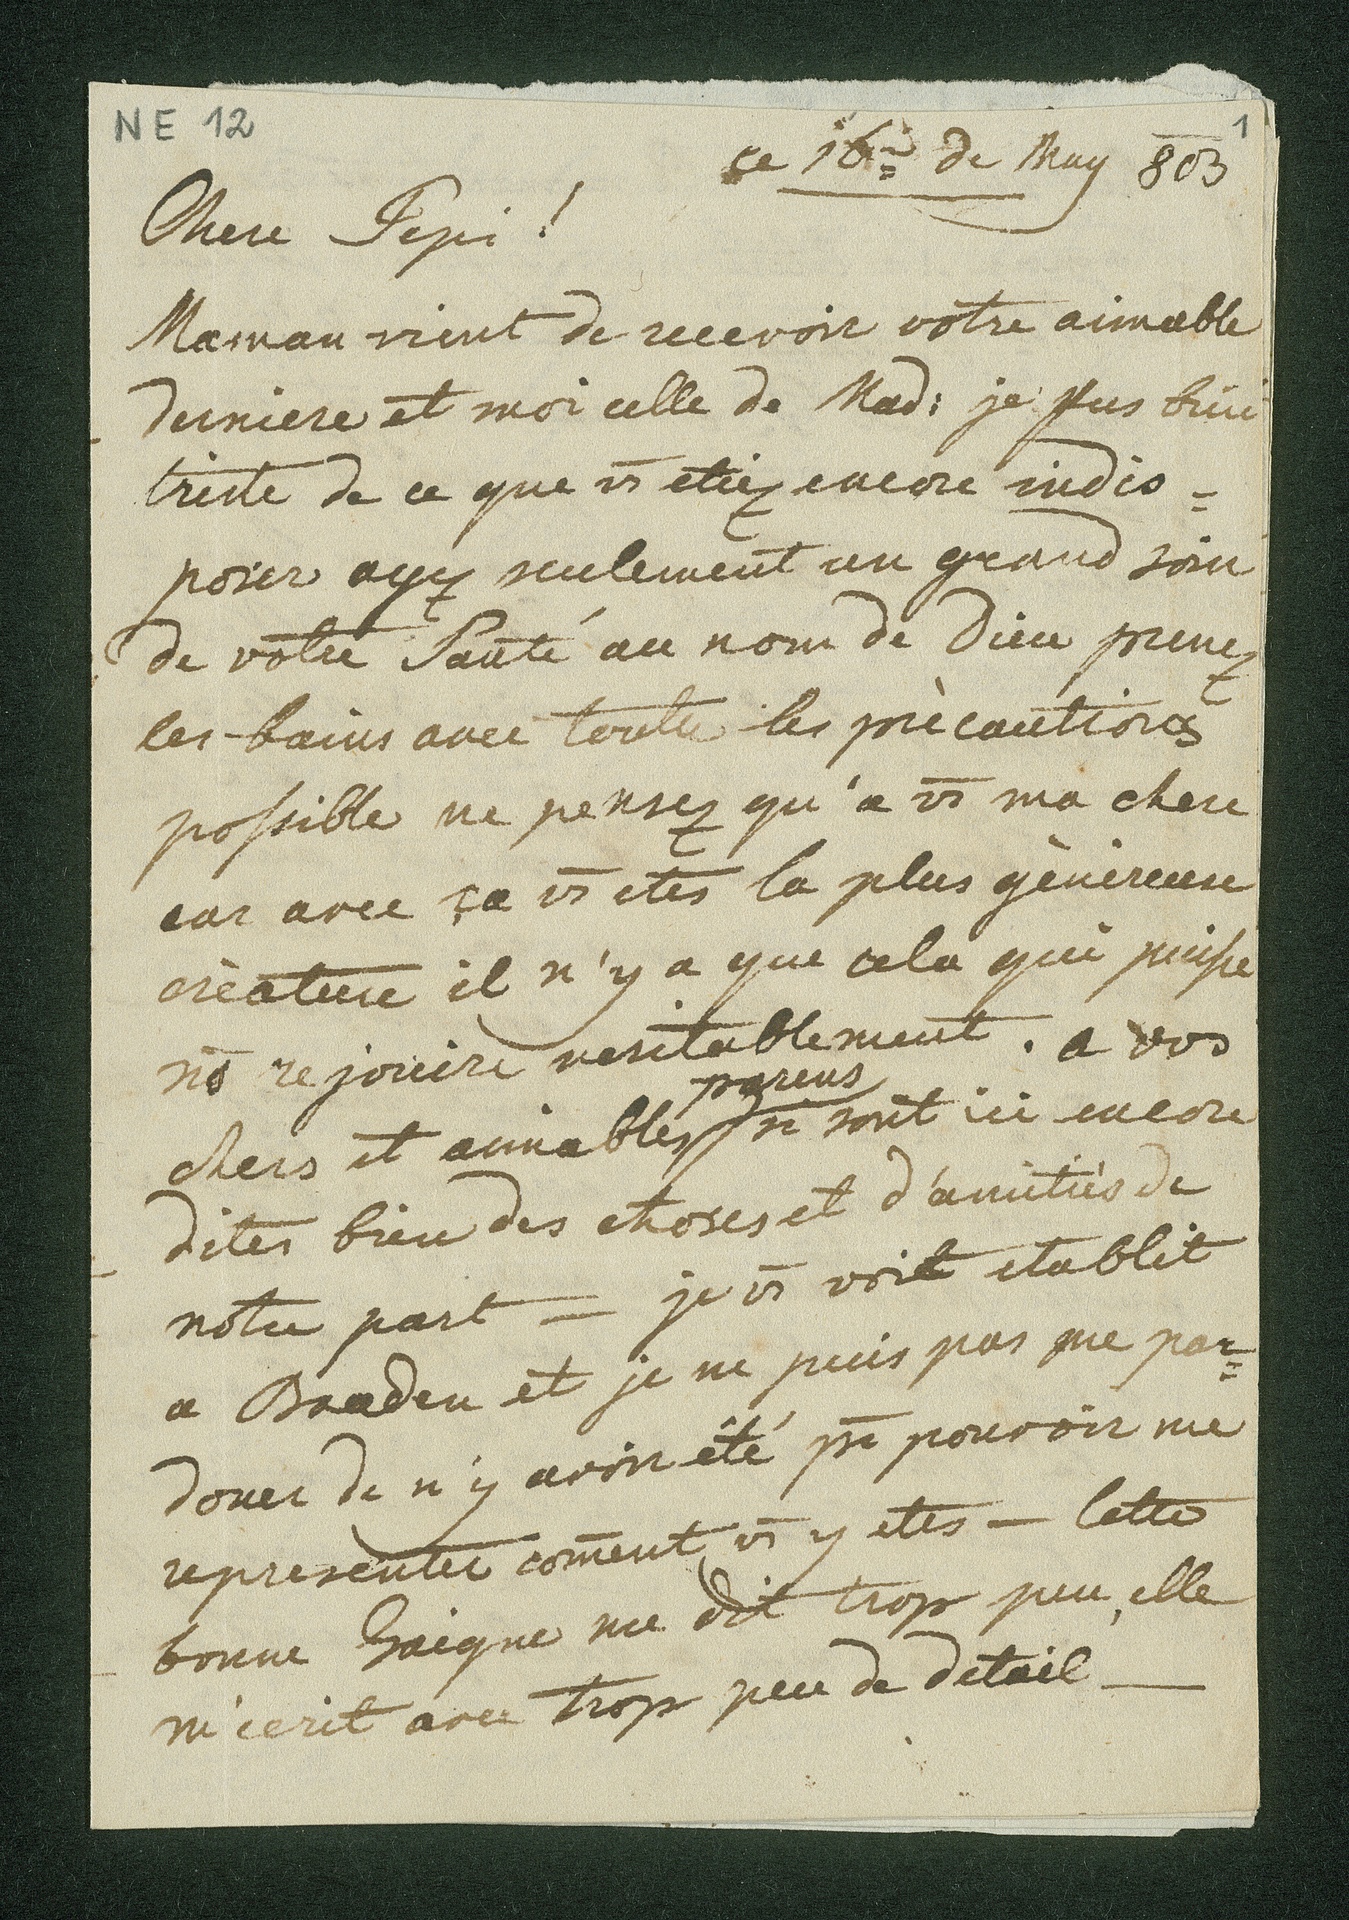 NE 12
1
ce 16me de May 803
Chere Pepi!
Maman vient de recevoir votre aimable
derniere et moi celle de Mad: je fus bien
triste de ce que vs etiez encore indis=
poser ayez seulement un grand soin
de votre Santé au nom de Dieu prenez
les bains avec toutte les prècautions
possible ne pensez qu'a vs ma chere
car avec ça vs etes la plus gènèreuse
crèature il n'y a que cela qui puisse
ns rejouire veritablement. a vos
chers et aimables parens s'ils sont ici encore
dites bien des choses et d'amitiés de
notre part — je vs voit etablit
a Baaden et je ne puis pas me par=
doner de n'y avoir été pr pouvoir me
representer coment vs y etes — cette
bonne Gaigne me dit trop peu, elle
m'ecrit avec trop peu de detail —